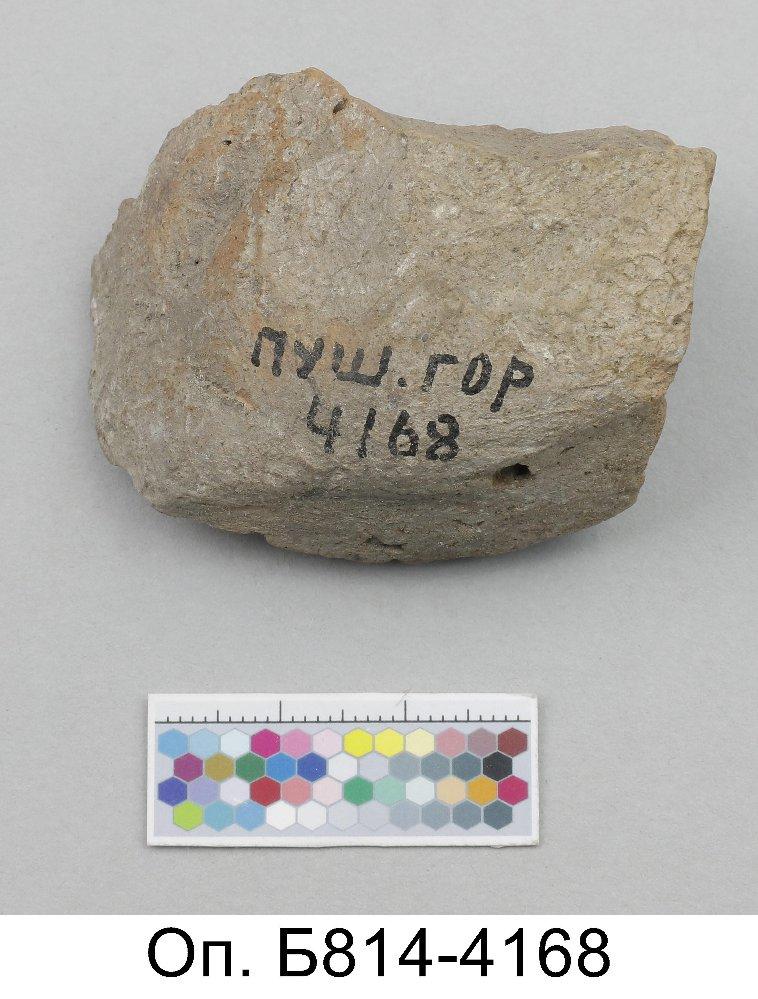 ПУШ.ГОР
4168
Оп. Б814-4168